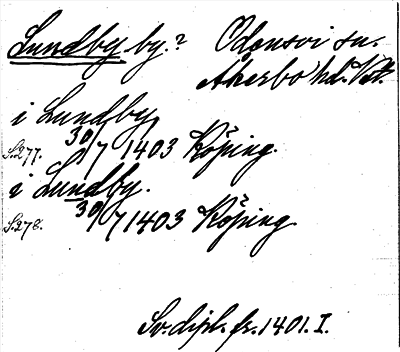 Lundby by.? Odensvi sn.
Åkerbo hd. Vstm.
i Lundby
S.277. 30/7 1403 Köping.
i Lundby.
S.278. 30/7 1403 Köping
Sv. dipl. fr. 1401. I.